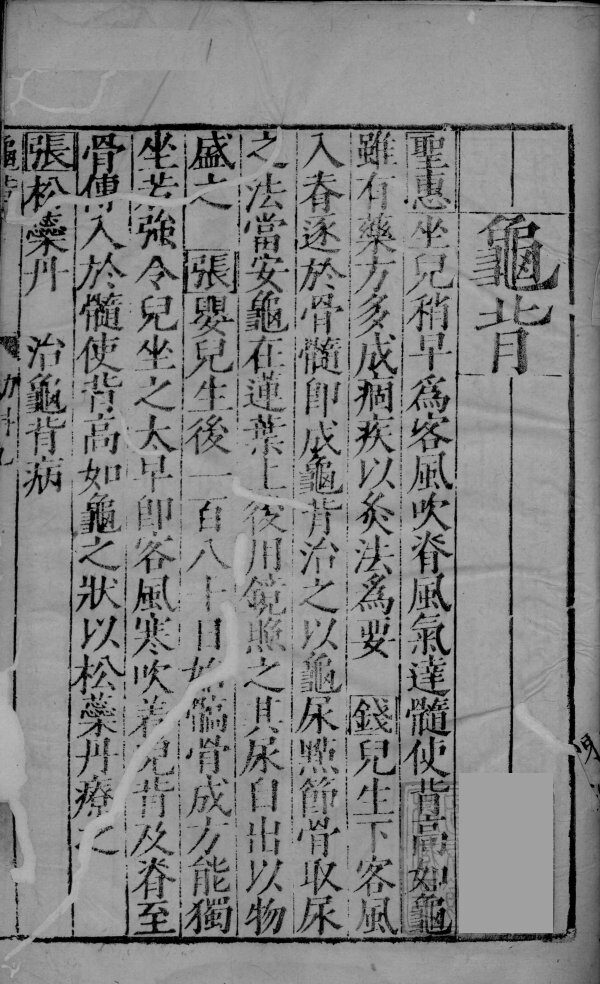 龜背
聖惠坐兒稍早爲客風吹脊風氣達髓使背高如龜
雖有藥方多成痼疾以灸法爲要 錢兒生下客風
入脊逐於骨髓即成龜背治之以龜尿點節骨取尿
之法當安龜在蓮葉上後用鏡照之其尿自出以物
盛之 張嬰兒生後一百八十日始髇骨成方能獨
坐若強令兒坐之太早即客風寒吹着兒背及脊至
骨傳入於髓使背高如龜之狀以松蘂丹療之
張松蘂丹 治龜背病
龜背